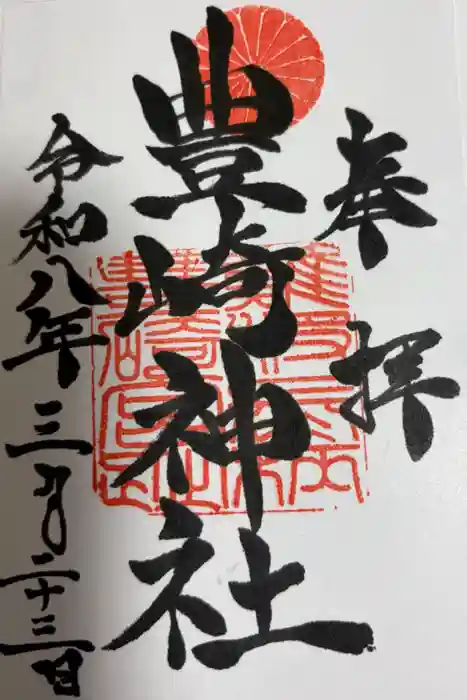 奉拝
豊崎神社
令和八年三月二十三日